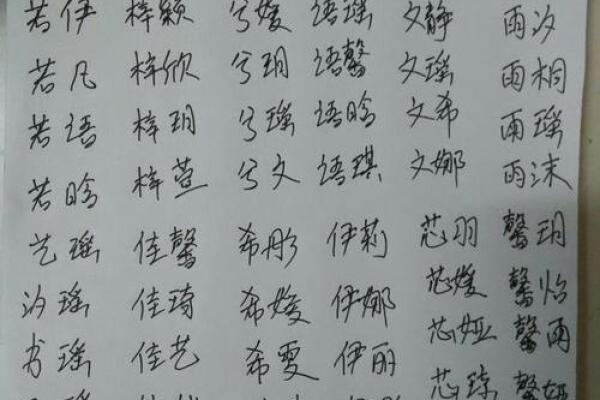 若伊 梓颖 兮媛 语瑶 文静 雨汐
若凡 梓欣 兮玥 语馨 文瑶 雨桐
若语 梓玥 兮瑶 语晗 文希 雨瑶
若晗 梓萱 兮文 语琪 文娜 雨沫
艺瑶 佳馨 希彤 伊莉 芯羽 馨玥
汐瑶 佳琦 希媛 伊娜 芯媛 馨怡
书瑶 佳艺 希雯 伊丽 芯娅 馨雨
芯琼 馨